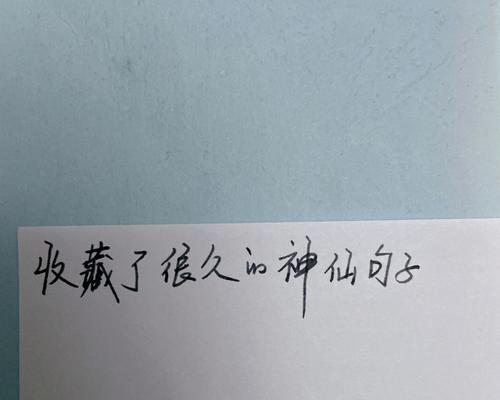 收藏了很久的神仙句子